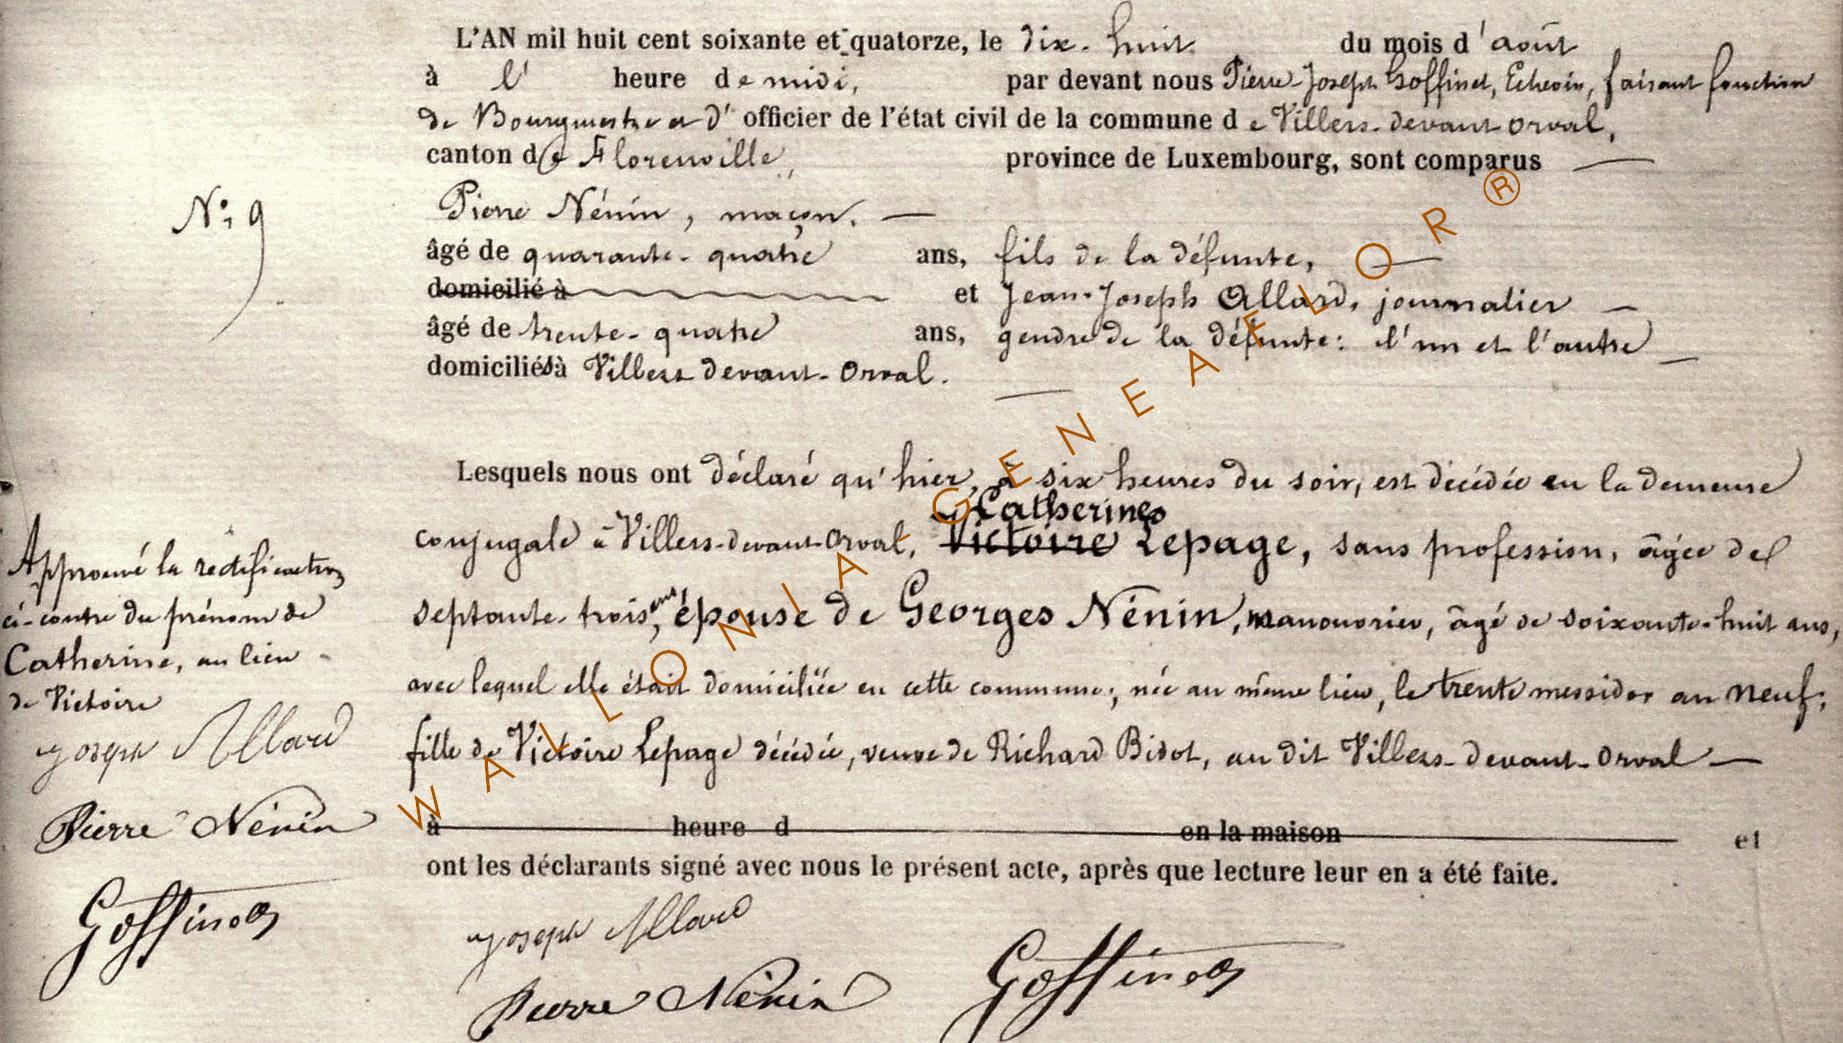 L'AN mil huit cent soixante et quatorze, le dix-huit du mois d'août
à l' heure de midi, par devant nous Pierre-Joseph Goffinet, Echevin, faisant fonction
de Bourgmestre et d'officier de l'état civil de la commune de Villers-devant-Orval,
canton de Florenville, province de Luxembourg, sont comparus
N° 9
Pierre Nénin, maçon.
âgé de quarante-quatre ans, fils de la défunte,
domicilié à et Jean-Joseph Allard, journalier
âgé de trente-quatre ans, gendre de la défunte: l'un et l'autre
domiciliés à Villers devant-Orval.
Lesquels nous ont déclaré qu'hier, à six heures du soir, est décédée en la demeure
Catherine
conjugale à Villers-devant-Orval, Victoire Lepage, sans profession, âgée de
septante-trois ans, épouse de Georges Nénin, manouvrier, âgé de soixante-huit ans,
avec lequel elle était domiciliée en cette commune; née au même lieu, le trente messidor an neuf,
fille de Victoire Lepage décédée, veuve de Richard Bidot, au dit Villers-devant-Orval
à heure d en la maison et
ont les déclarants signé avec nous le présent acte, après que lecture leur en a été faite.
Joseph Allard
Pierre Nénin
Goffinet
Approuvé la rectification
ci-contre du prénom de
Catherine, au lieu
de Victoire
Joseph Allard
Pierre Nénin
Goffinet
WALLONIA GENEAFLOR®